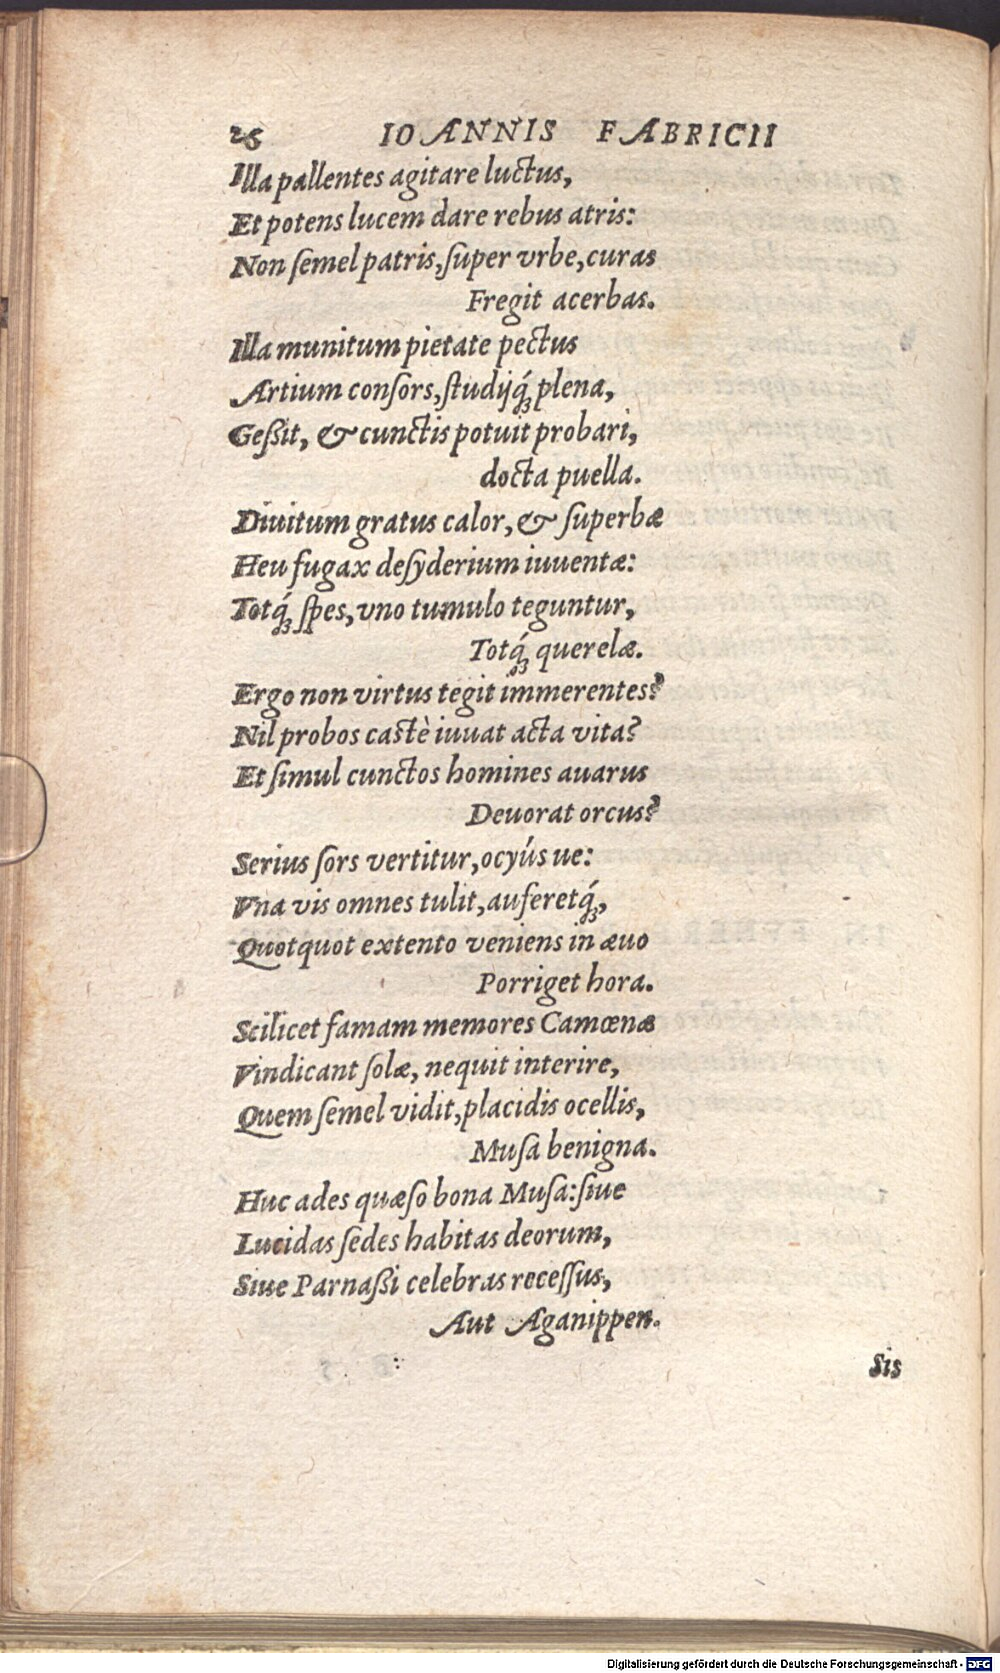 26 IOANNIS FABRICII
Illa pallentes agitare luctus,
Et potens lucem dare rebus atris:
Non ſemel patris, ſuper vrbe, curas
Fregit acerbas.
Illa munitum pietate pectus
Artium conſors, ſtudijq́; plena,
Geßit, & cunctis potuit probari,
docta puella.
Diuitum gratus calor, & ſuperbæ
Heu fugax deſyderium iuuentæ:
Totq́; ſpes, vno tumulo teguntur,
Totq́; querelæ.
Ergo non virtus tegit immerentes?
Nil probos castè iuuat acta vita?
Et ſimul cunctos homines auarus
Deuorat orcus?
Serius ſors vertitur, ocyús ue:
Vna vis omnes tulit, auferetq́;,
Quotquot extento veniens in æuo
Porriget hora.
Scilicet famam memores Camœnæ
Vindicant ſolæ, nequit interire,
Quem ſemel vidit, placidis ocellis,
Muſa benigna.
Huc ades quæſo bona Muſa: ſiue
Lucidas ſedes habitas deorum,
Siue Parnaßi celebras receſſus,
Aut Aganippen.
Sis
Digitalisierung gefördert durch die Deutsche Forschungsgemeinschaft - DFG